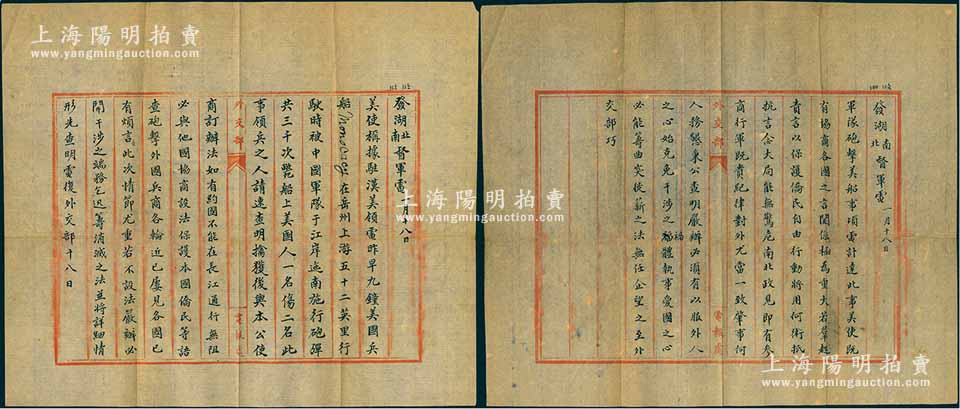 上海陽明拍賣
www.yangmingauction.com
發湖北南督軍電 一月十八日
美使稱據駐漢美領電昨早九鐘美國兵
船 在岳州上海五十二英里行
駛時被中國軍隊于江岸迤南施行砲彈
共三千次斃船上美國人一名傷二名此
事領兵之人請速查明擒獲後與本公使
商訂辦法如有約國不能在長江通行無阻
必與他國協商設法保護本國僑民等語
查砲擊外國兵商各輪近已屢見各國已
有煩言此次情節尤重若不設法嚴辦必
開干涉之端務乞迅籌消滅之法並將詳細情
形先查明電復外交部十八日
外交部
上海陽明拍賣
www.yangmingauction.com
發湖南北督軍電 一月十八日
軍隊砲擊美船事項電計達此事美使既
有協商各國之言關係極為重大若羣起
責言以保護僑民自由行動將用何術抵
抗言念大局能無驚危南北政見即有參
商行軍既貴紀律對外尤當一致肇事何
人務懇秉公查明嚴辦必須有以服外人
之心始克免干涉之禍 體執事愛國之心
禍
必能籌曲突徙薪之法無任企望之至外
交部巧
外交部
電報處
上海陽明拍賣
www.yangmingauction.com